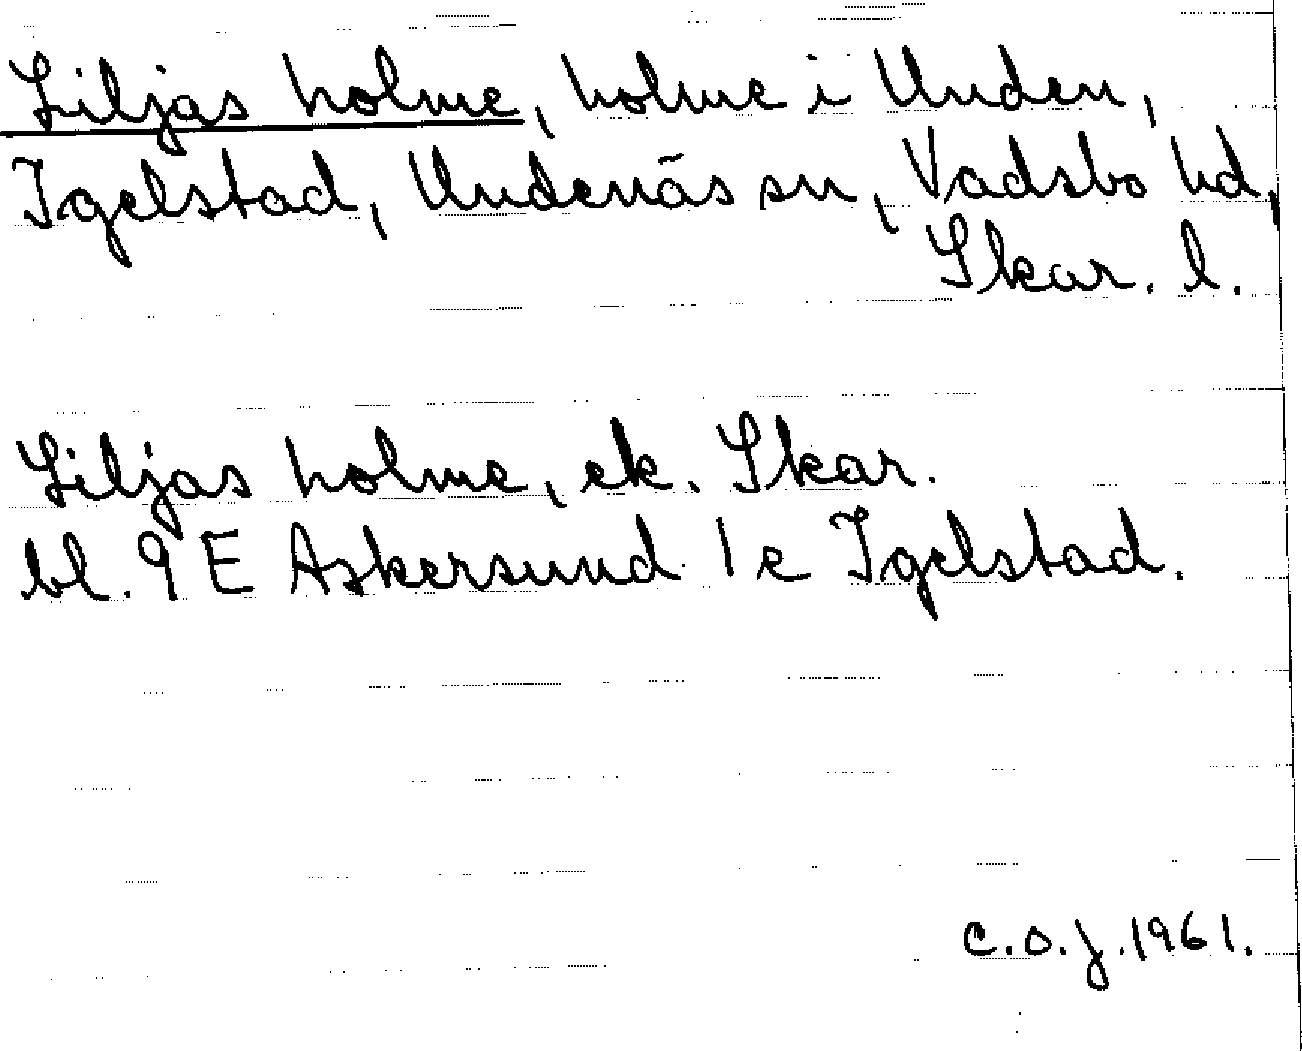 Liljas holme, holme i Unden,
Igelstad, Undenäs sn, Vadsbo hd,
Skar. l.
Liljas holme, ek. Skar.
bl. 9 E Askersund 1 e Igelstad.
C.O.J. 1961.